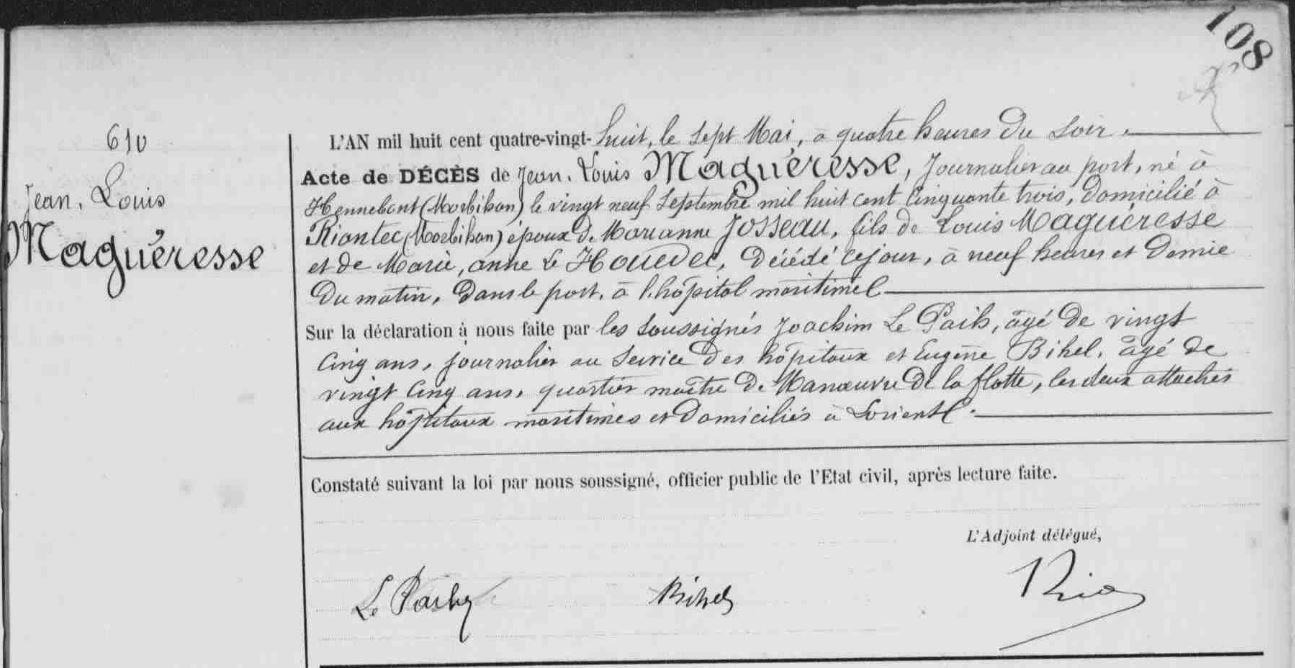 108
610
Jean, Louis
Maguéresse
L'AN mil huit cent quatre-vingt-huit, le sept Mai, à quatre heures du soir.
Acte de DÉCÈS de Jean, Louis Maguéresse, Journalier au port, né à
Hennebont (Morbihan) le vingt neuf Septembre mil huit cent cinquante trois, domicilié à
Riantec (Morbihan) époux de Marianne Josseau, fils de Louis Maguéresse
et de Marie, anne Le Houedec, décédé ce jour, à neuf heures et demie
du matin, dans le port, à l'hôpital maritime
Sur la déclaration à nous faite par les soussignés Joachim Le Paih, âgé de vingt
cinq ans, journalier au service des hôpitaux et Eugène Bihel, âgé de
vingt cinq ans, quartier maître de Manœuvre de la flotte, les deux attachés
aux hôpitaux maritimes et domiciliés à Lorient.
Constaté suivant la loi par nous soussigné, officier public de l'Etat civil, après lecture faite.
L'Adjoint délégué,
Bihel
Rio